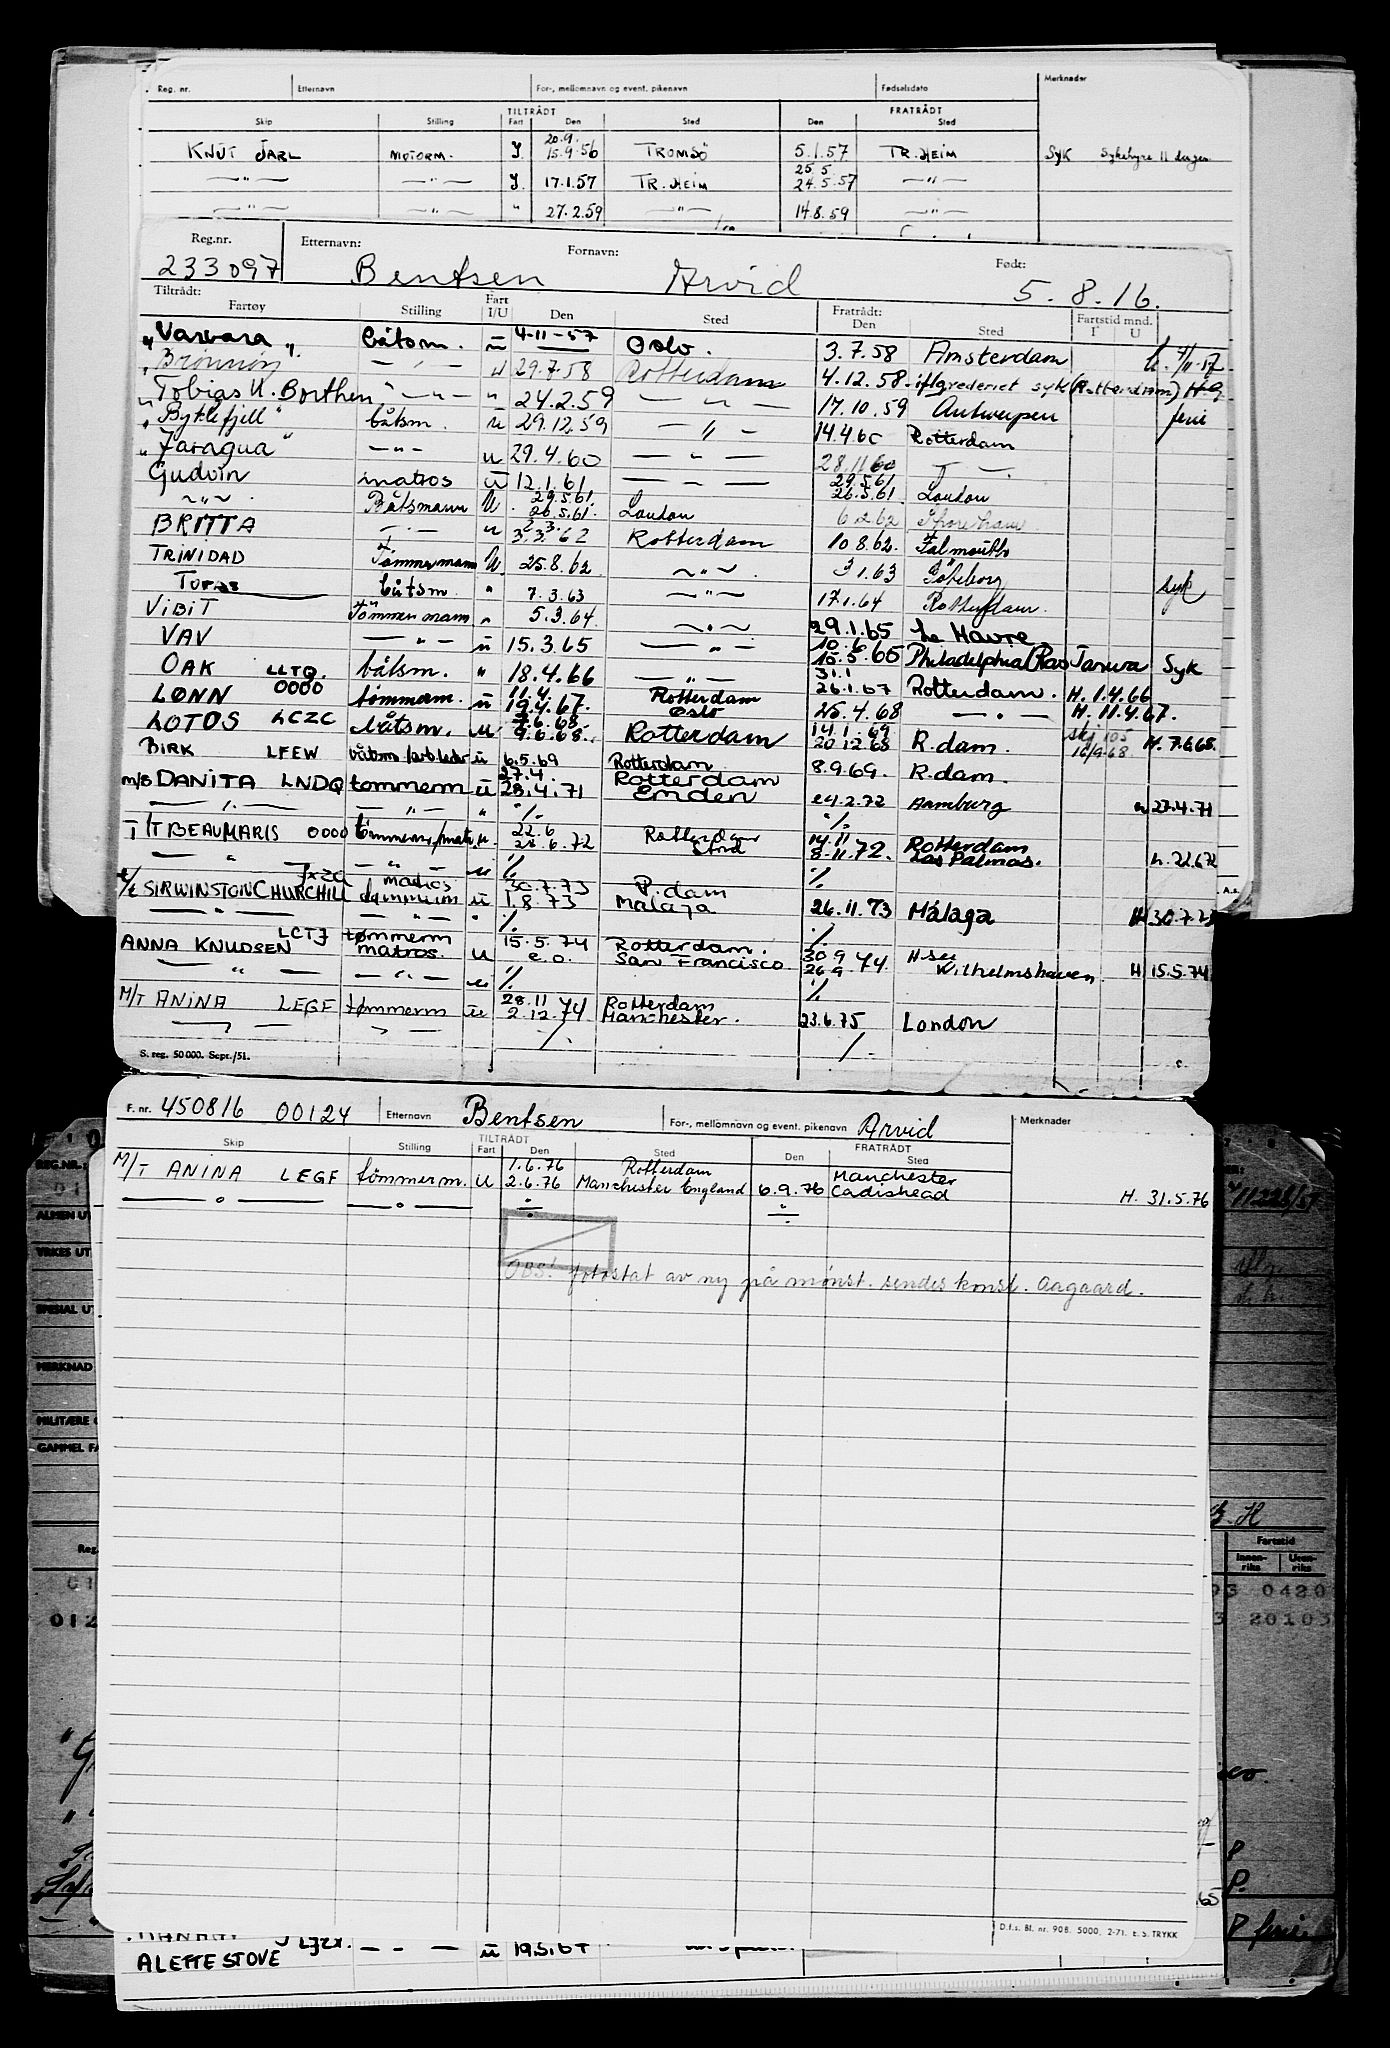 Reg. nr. Etternavn For-, mellomnavn og event. pikenavn Fødselsdato Merknader
TILTRÅDT FRATRÅDT
Skip Stilling Fart Den Sted Den Sted
20.9.
KNUT JARL MOTORM. J. 15.9.56 TROMSÖ 5.1.57 TR.HEIM SYK Sykehyre 11 dager
25.5
—"— —"— J. 17.1.57 TR.HEIM 24.5.57 —"—
—"— —"— " 27.2.59 —"— 14.8.59 —"—
Reg.nr. Etternavn: Fornavn: Født:
233097 Bentsen Arvid 5.8.16.
Tiltrådt: Fratrådt:
Fartøy Stilling Fart I/U Den Sted Den Sted Fartstid mnd. I U
"Varvara" båtsm. u 4-11-57 Oslo. 3.7.58 Amsterdam
"Brönnöy —"— u 29.7.58 Rotterdam 4.12.58 iflg rederiet syk (Rotterdam) H.G.
"Tobias U. Borthen" —"— " 24.2.59 —"— 17.10.59 Antwerpen ferie
"Byklefjell" båtsm. u 29.12.59 —"— 14.4.60 Rotterdam
"Jaragua" —"— u 29.4.60 —"— 28.11.60 —"—
Gudvin matros u 12.1.61 —"— 29.5.61
26.5.61 London
—"— Båtsmann U. 29.5.61
26.5.61. London 6.2.62 Shoreham
BRITTA —"— u 3.3.62 Rotterdam 10.8.62. Falmouth
TRINIDAD Tömmermann U. 25.8.62. —"— 3.1.63 Göteborg
TOPAS båtsm. " 7.3.63 —"— 17.1.64 Rotterdam. syk
VIBIT Tömmermann " 5.3.64. —"— 29.1.65 Le Havre
VAV —"— u 15.3.65 —"— 10.6.65
15.5.65 Philadelphia (Ras Tanura Syk
OAK LLTQ. båtsm. " 18.4.66 —"— 31.1
26.1.67 Rotterdam. H. 1.4.66
LØNN 0000 tömmerm. u 11.4.
19.4.67. Rotterdam
Oslo 25.4.68 —"— H. 11.4.67.
LOTOS LCZC båtsm. u 7.6.68
9.6.68. Rotterdam 14.1.69
20.12.68 R.dam. 16/9-68 H. 7.6.68.
BIRK LFEW båtsm u 6.5.69 Rotterdam 8.9.69. R.dam.
m/s DANITA LNDQ tømmerm u 27.4.
28.4.71 Rotterdam
Emden 24.2.72 Hamburg 27.4.71
—"— —"— " ./. ./.
T/T BEAUMARIS 0000 tømmerm/matr. u. 22.6
28.6.72 Rotterdam
Stord 14.11
8.11.72. Rotterdam
Las Palmas. h. 22.6.72
—"— —"— u ./. ./.
JXZQ
t/t SIR WINSTON CHURCHILL matros
tømmerm u 30.7.73
1.8.73 R.dam
Malaga 26.11.73 Málaga H 30.7.73
—"— —"— " ./. ./.
ANNA KNUDSEN LCTJ tømmerm
matros. u 15.5.74
e.o. Rotterdam.
San Francisco 30.9
26.9.74. H-see
Wilhelmshaven. H 15.5.74
—"— —"— u ./. ./.
M/T ANINA LEGF tømmerm u 28.11
2.12.74 Rotterdam
Manchester. 23.6.75 London
—"— —"— ./. ./.
S. reg. 50 000. Sept./51.
F. nr. 450816 00124 Etternavn Bentsen For-, mellomnavn og event. pikenavn Arvid Merknader
TILTRÅDT FRATRÅDT
Skip Stilling Fart Den Sted Den Sted
M/T ANINA LEGF tömmerm. u 1.6.76
2.6.76 Rotterdam
Manchester England 6.9.76 Manchester
Cadishead H. 31.5.76
—o— —o— ÷ ÷
OBS! fotostat av ny på mønst. sendes konsl. Aagaard.
REG.NR.:
ALMEN UT
YRKES UT
SPESIAL UT
MERKNAD
MILITÆRE
GAMMEL FA
Fartstid
Innen-riks Uten-riks
0420
20103
D.f.s. Bl. nr. 908. 5000. 2-71. E. S. TRYKK
P ferie
ALETTE STOVE —"— u 19.5.67